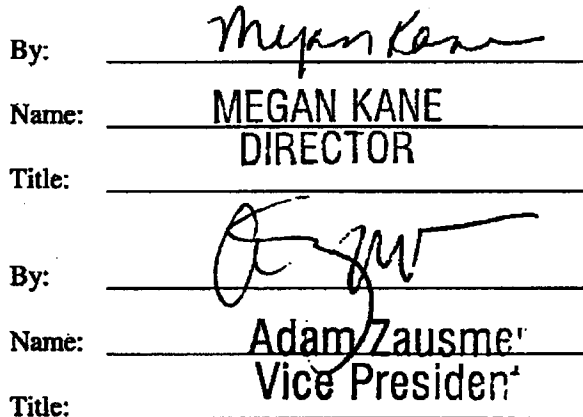 By: Megan Kane
Name: MEGAN KANE
DIRECTOR
Title:
By:
Name: Adam Zausmer
Vice President
Title: